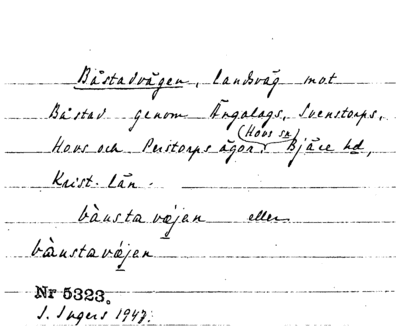 Båstadvägen, landsväg mot
Båstad genom Ängalags, Svenstorps,
Hovs och Perstorps ägor (Hovs sn) Bjäre hd,
Krist. län.
bàusta væjen eller
bàusta væjen
Nr 5323.
I. Ingers 1947.